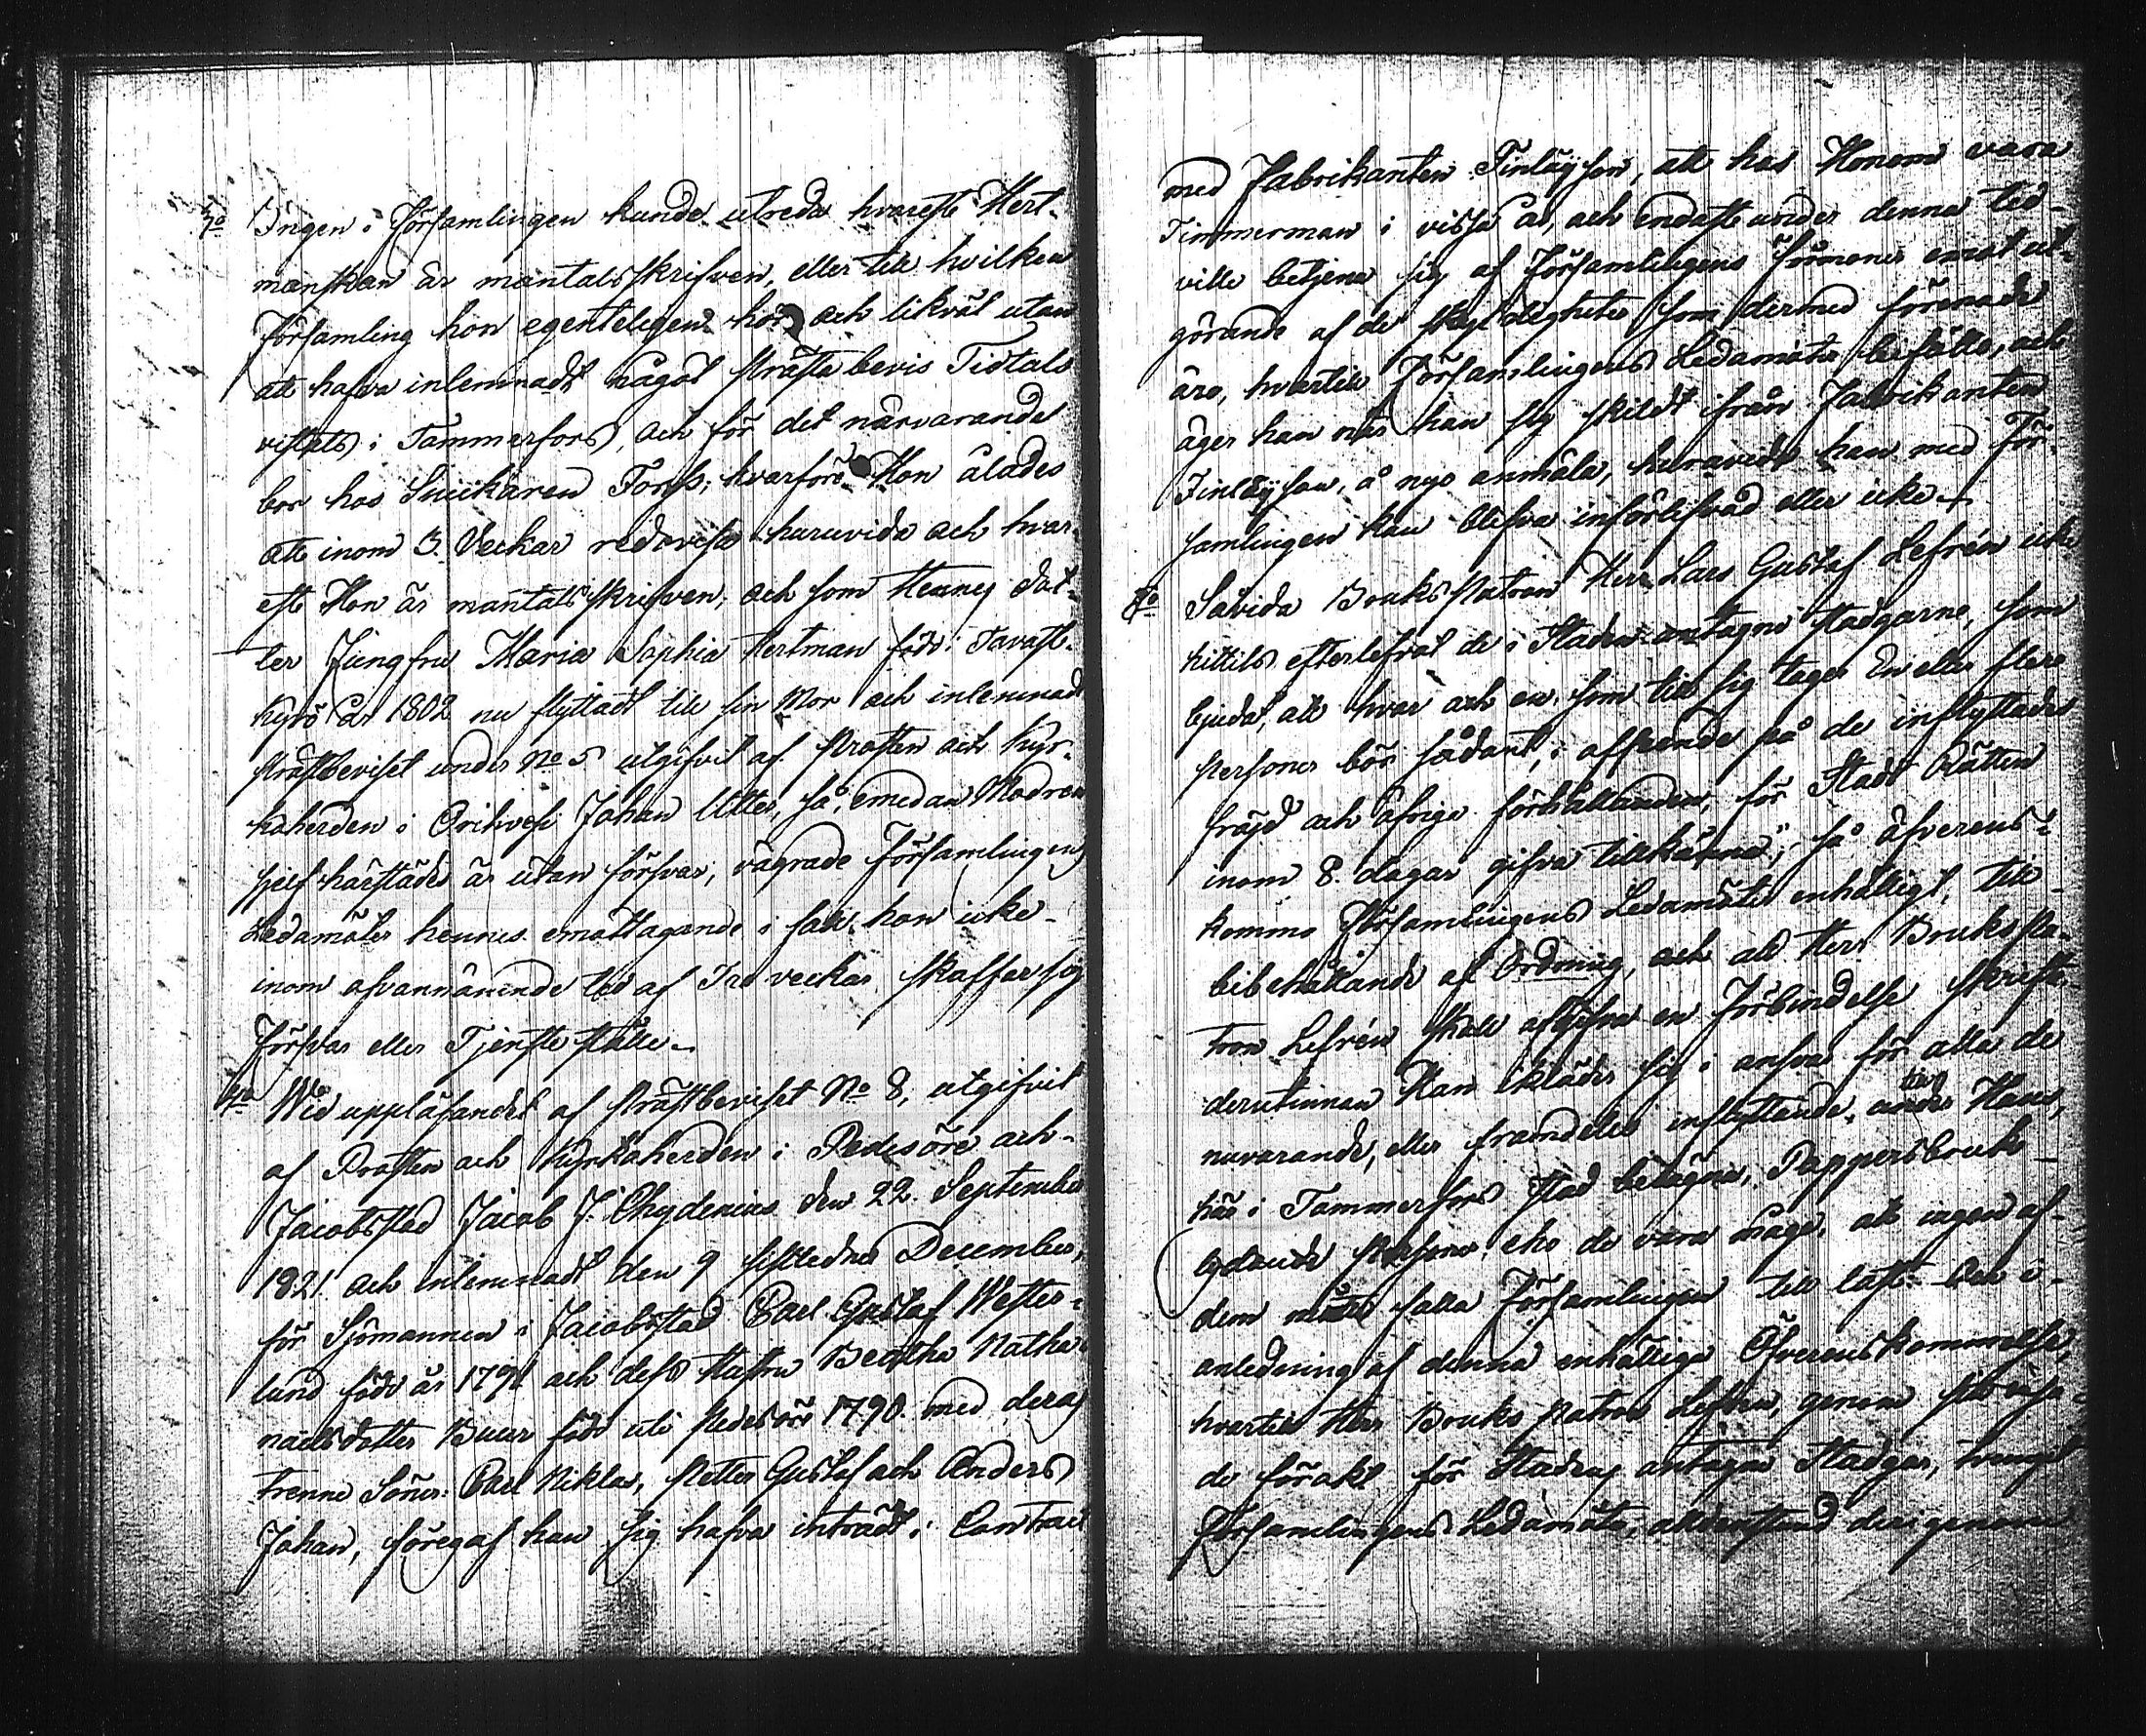 3o Ingen i Församlingen kunde utreda hvarest Hert-
manskan är mantalsskrifven, eller till hvilken
Församling hon egenteligen hör och likväl utan
att hafva inlemnadt något Prästebevis Tidtals
vistats i Tammerfors, och för det närvarande
bor hos Snickaren Forss; hvarföre Hon ålades
att inom 3. Veckar redovisa huruvida och hvar-
est Hon är mantalsskrifven; och som Hennes dot-
ter Jungfru Maria Sophia Hertman född i Tavast-
kyrö år 1802 nu flyttadt till sin Mor och inlemnadt
Prästbeviset under No 5 utgifvit af Prosten och Kyr-
koherden i Orihvesi Johan Utter, så, emedan Modren
sjelf härstädes är utan försvar, vägrade Församlingens
Ledamöter hennes emottagande i fall hon icke
inom ofvannämnde tid af Tre veckar skaffar sig
försvar eller Tjensteställe.
4o Wid uppläsandet af Prästbeviset No 8, utgifvit
af Prosten och Kyrkoherden i Pedersöre och
Jacobstad Jacob J. Chydenius den 22. September
1821 och inlemnadt den 9 sistledne December,
för Sjömannen i Jacobstad Carl Gustaf Wester-
lund född år 1791 och dess Hustru Beatha Natha-
naelsdotter Buur född uti Pedersöre 1790. med deras
trenne Söner: Carl Niklas, Petter Gustaf och Anders
Johan, föregaf han sig hafva inträdt i Contract
med Fabrikanten Finlayson, att hos Honom vara
Timmerman i vissa år, och endast under denna tid
ville betjena sig af Församlingens förmoner emot ut-
görande af de skyldigheter som dermed förenade
äro, hvartill Församlingens Ledamöter biföllo, och
äger han när han sig skildt ifrån Fabrikanten
Finlayson, å nyo anmäla, huruvidt han med För-
samlingen kan blifva införlifvad eller icke.
5o Såvida Bruks Patron Herr Lars Gustaf Lefrén icke
hittils efterlefvat de i Staden antagne stadgarne, som
bjuda, att hvar och en, som till sig tager En eller flere
Personer bör sådant, i afseende på de inflyttades
frejd och öfrige förhållanden, för Stads Rätten
inom 8. dagar gifva tillkänna; så öfverens-
kommo Församlingens Ledamöter enhälligt, till
bibehållande af Ordning, och att Herr Bruks Pa-
tron Lefrén skall afgifva en Förbindelse skrift.
derutinnan Han ikläder sig i ansvar för alla de
nuvarande, eller framdeles inflyttande, till Hans,
här i Tammerfors stad belägne, Pappersbruk
lydande Personer eho de vara måge, att ingen af
dem måtte falla Församlingen till last. Och i
anledning af denna enhällige Öfverenskommelse,
hvartill Herr Bruks Patron Lefrén, genom sitt visa-
de förakt för Stadens antagne Stadgar, tvungit
Församlingens Ledamöter, alldenstund derigenom